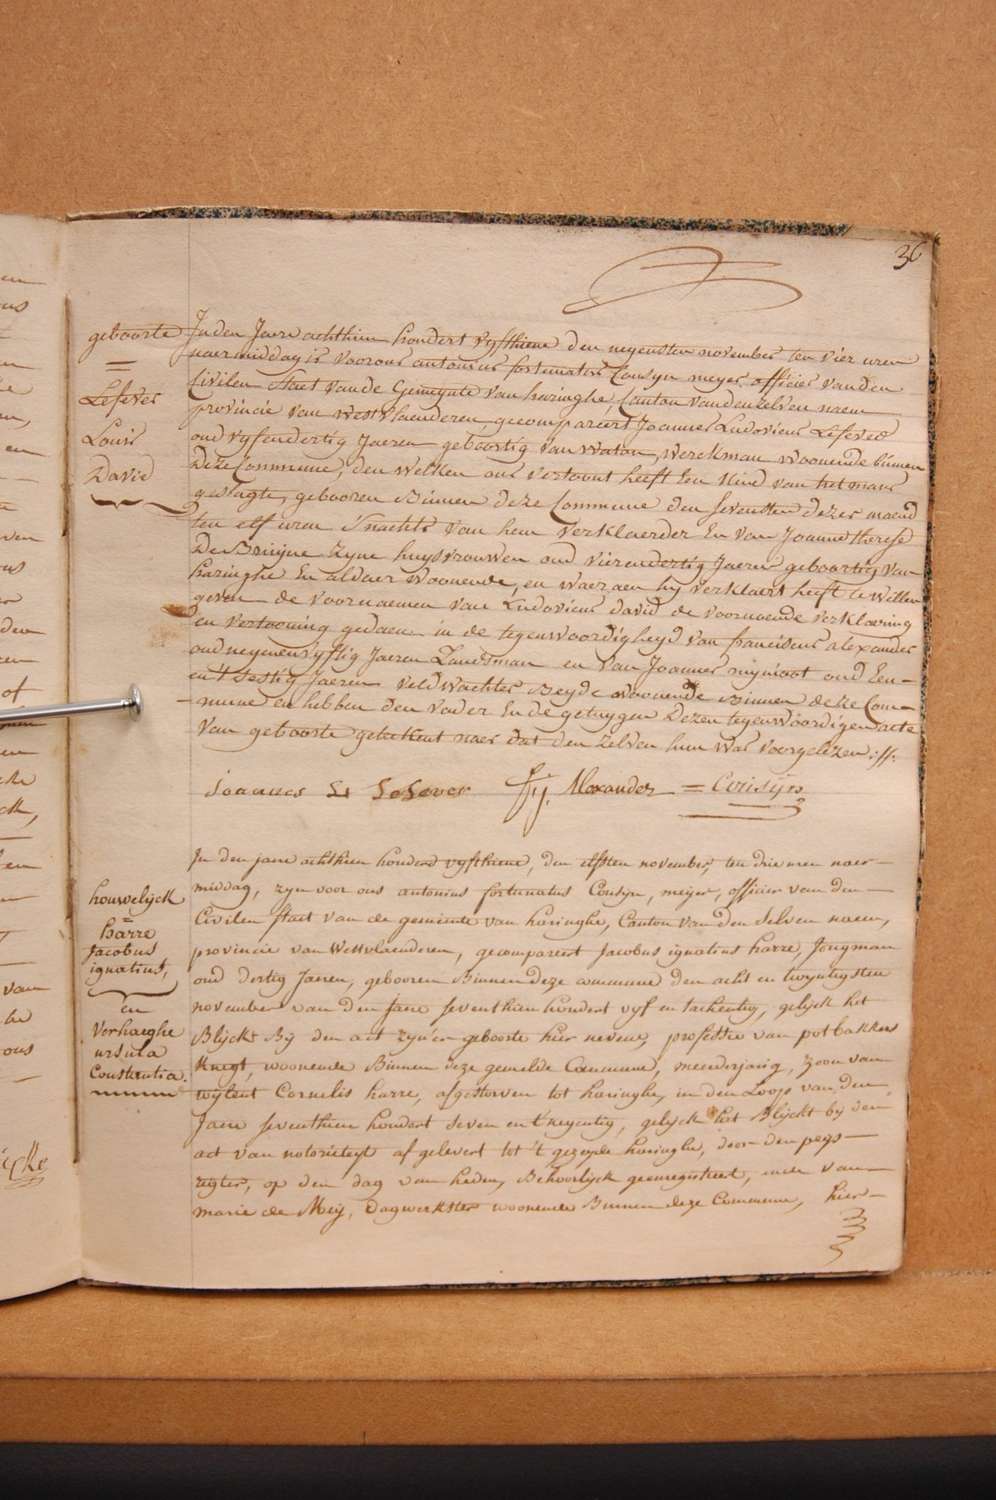 36
geboorte
=
Lefever
Louis
David
In den Jaere achthien hondert vyfthiene den negensten november ten vier uren
naermiddag is voor ons antonius fortunatus Cousyn meyer officier van den
Civilen Staet van de Gemeynte van haringhe, Canton van den zelven naem
provincie van westvlaanderen, gecompareert Joannes Ludovicus Lefever
oud vyfendertig Jaeren geboortig van waton, werckman woonende binnen
deze Commune, den welken ons vertoont heeft Een kind van het mans
geslagte, gebooren Binnen deze Commune den sevensten dezer maend
ten elf uren s'nachts van hem verklaerder En van Joanne therese
De Bruijne zyne huysvrouwen oud vierendertig Jaeren geboortig van
haringhe En aldaer woonende, en waer aen hy verklaert heeft te willen
geven de voornaemen van Ludovicus david de voornoende verklaering
en vertooning gedaen in de tegenwoordigheyd van franciscus alexander
oud negenenvyftig Jaeren Landsman en van Joannes oud Een-
ent sestig Jaeren veldwachter Beyde woonende Binnen deze Com-
mune en hebben den vader En de getuygen dezen tegenwoordigen acte
van geboorte geteekent naer dat den zelven hun was voorgelezen
Joannes L Lefever Alexander = Cousijn
houwelijck
=
harre
Jacobus
ignatius,
en
Verhaeghe
ursula
Constantia.
In den jare achthien honderd vyfthiene, den elfsten november, ten drie uren naer-
middag, zyn voor ons antonius fortunatus Cousyn, meijer, officier van den
Civilen staet van de gemeente van haringhe, Canton van den selven naem,
provincie van Westvlaenderen, gecompareert Jacobus ignatius harre, Jongman
oud dertig Jaeren, gebooren Binnen deze commune den acht en twyntigsten
november van den Jaere seventhien hondert vyf en tachentig, gelijck het
Blijckt Bij den act zijn'er geboorte hier nevens, professie van potbakkers
knegt, woonende Binnen deze gemelde Commune, meerderjarig, zoon van
wylent Cornelis harre, afgestorven tot haringhe, in den Loop van den
Jaere seventhien hondert seven en t'negentig, gelijck het Blijckt bij den
act van notorieteyt afgelevert tot 't gezeyde haringhe, door den pays-
regter, op den dag van heden, Behoorlijck geenregistreert, ende van
marie de Meij, Dagwerkster woonende Binnen deze Commune, hier-